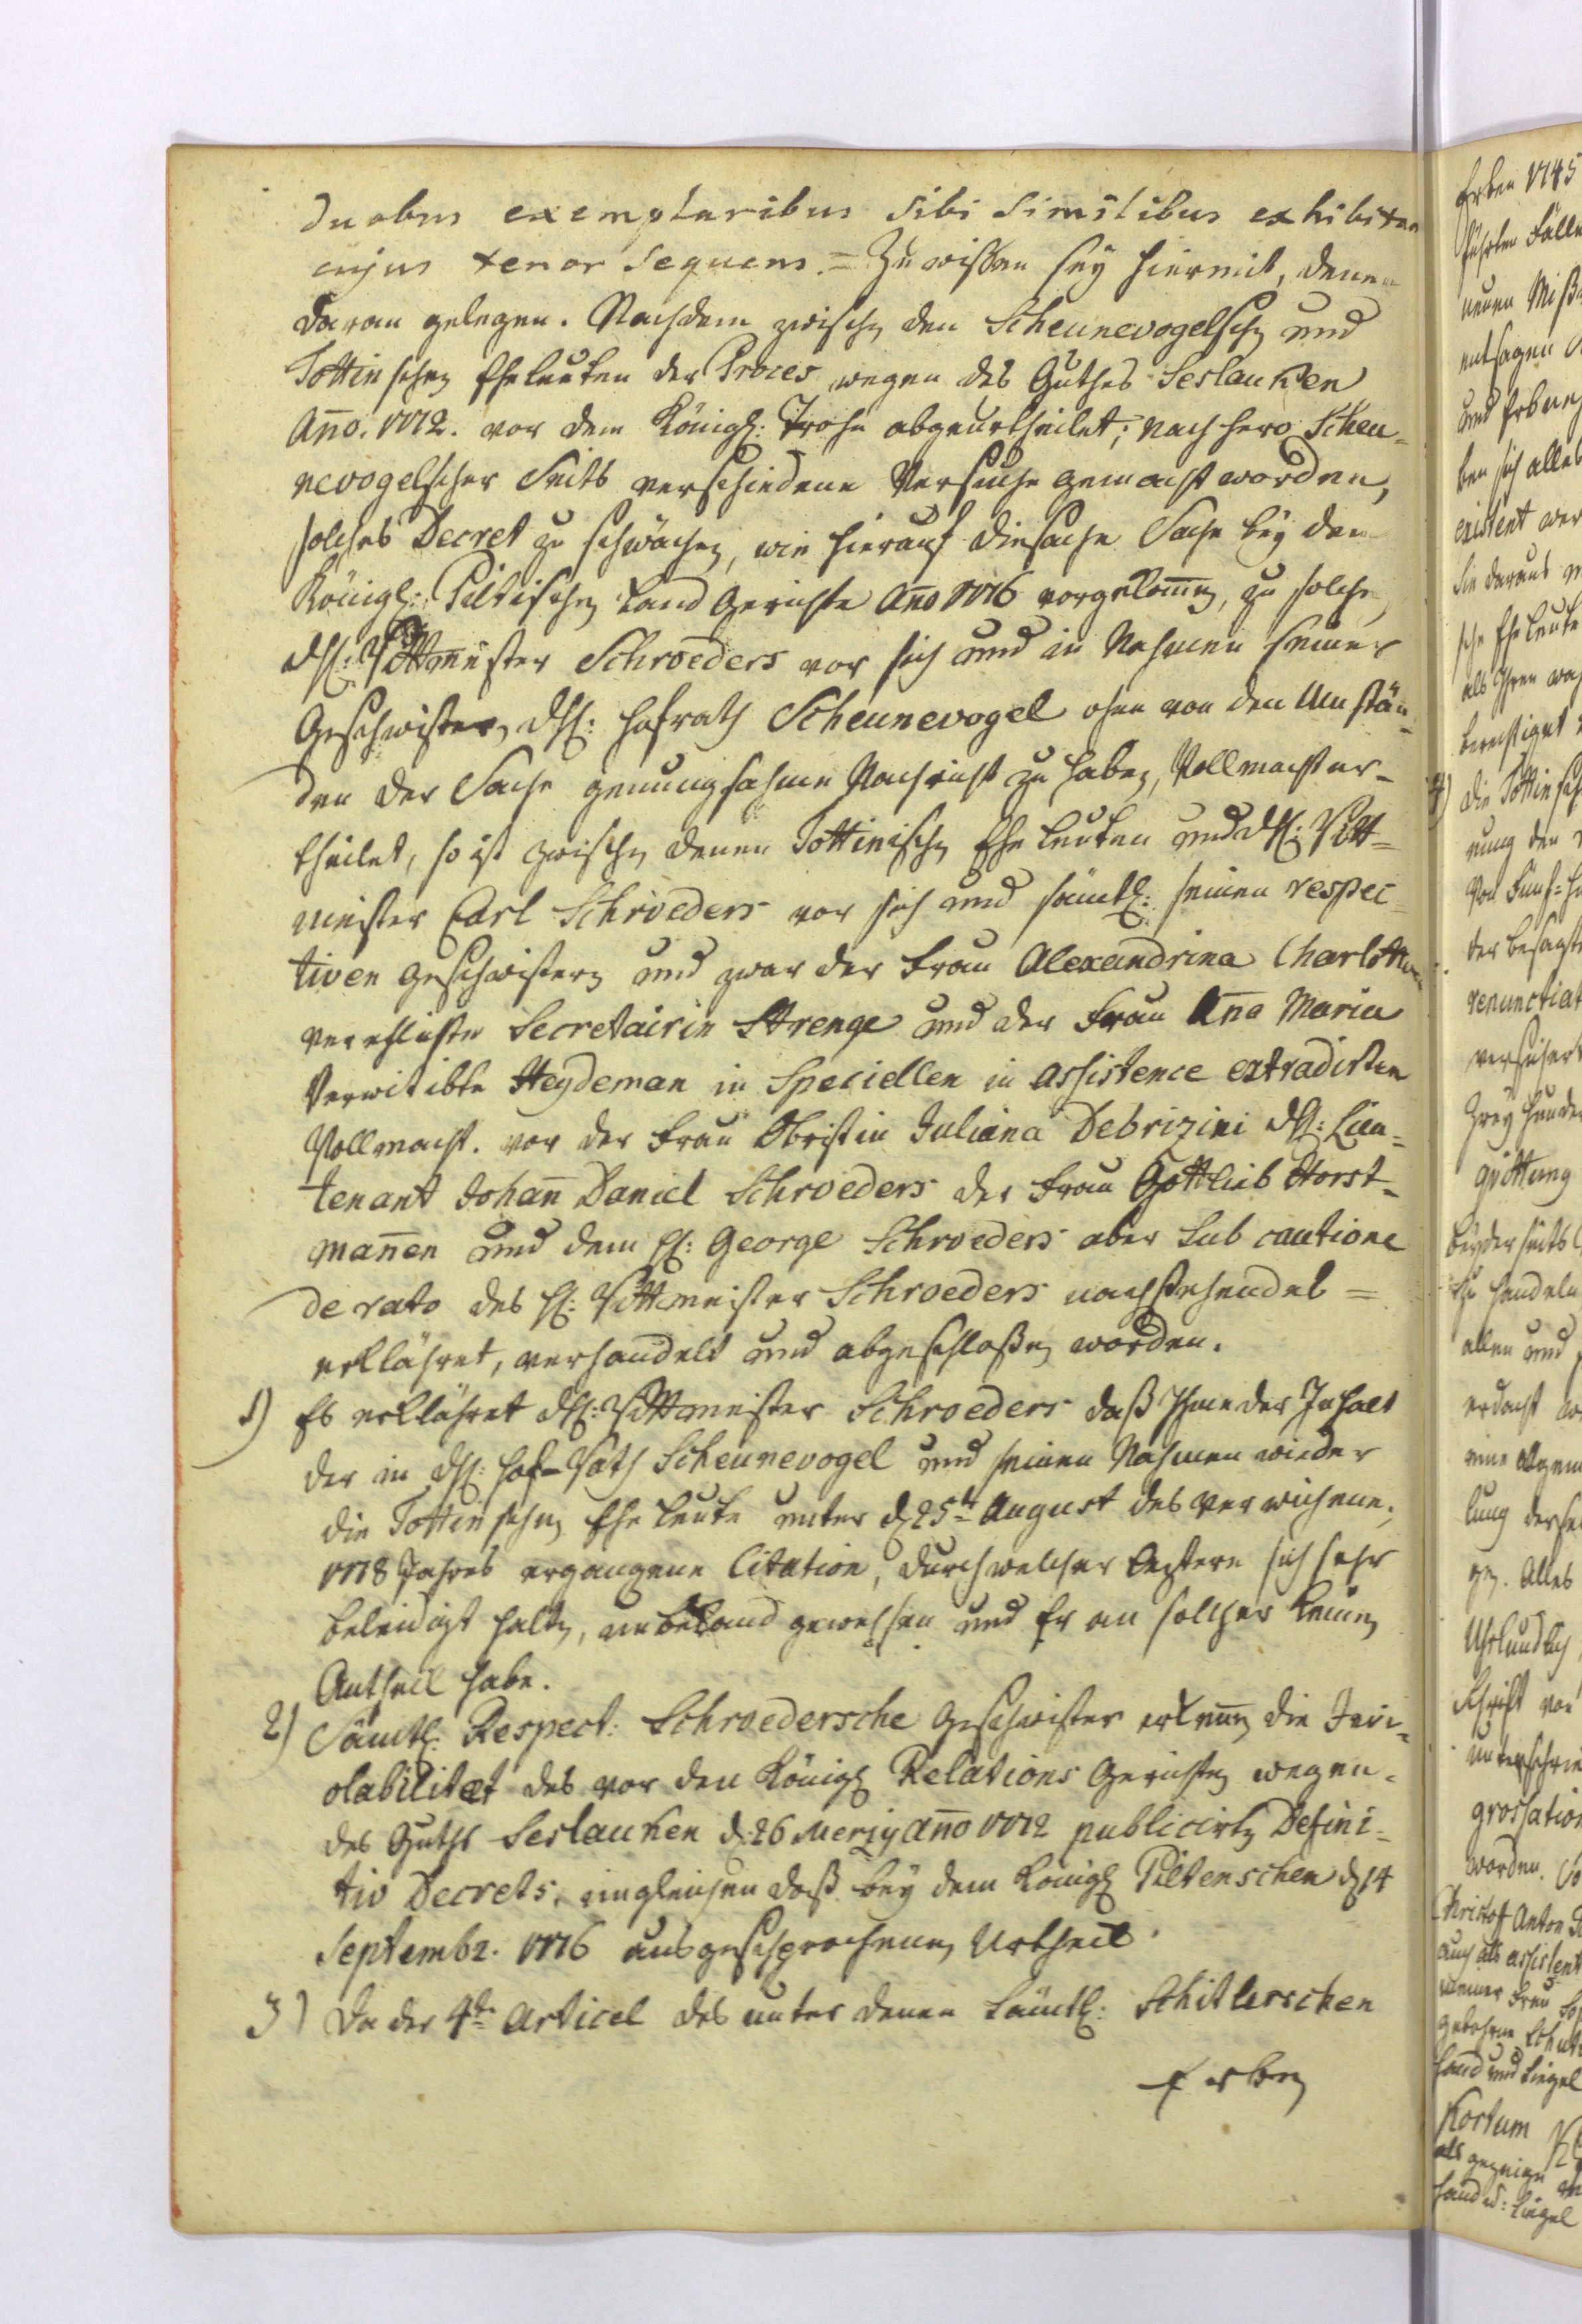 Duobus exemplaribus sibi similibus exhibitam
cujus tenor sequens. = Zu wißen seÿ hiermit, denen
daran gelegen. Nachdem zwischen den Scheunevogelschen und
Tottinschen Eheleuten der Proces wegen des Guthes Seslauken
Año. 1772. vor dem Königl: Trohn abgeurtheilet; nachhero Scheu-
nevogelscher Seits verschiedene Versuche gemacht worden,
solches Decret zu schwächen, wie hierauf dieselbe Sache beÿ dem
Königl: Piltischen Land Gerichte Año 1776 vorgekom̃en, zu solcher
d H: Rittmeister Schroeders vor sich und in Nahmen seiner
Geschwister, d H: Hofrath Scheunevogel ohne von den Umstän-
den der Sache genungsahme Nachricht zu haben, Vollmacht er-
theilet, so ist zwischen denen Tottinischen Eheleuten und d H: Ritt-
meister Carl Schroeders vor sich und sämtl: seinen respec-
tiven Geschwistern und zwar der Frau Alexandrina Charlotta
verehlichte Secretairin Strenge und der Frau Aña Maria
Verwitibte Heydeman in Speciellen in assistence extradirten
Vollmacht. vor der Frau Obristin Juliana Debrizini d H: Lieu-
tenant Johañ Daniel Schroeders der Frau Gottlieb Horst-
mañen und dem H: George Schroeders aber sub cautione
de rato des H: Rittmeister Schroeders nachstehendes =
erklähret, verhandelt und abgeschloßen worden.
1) Es erklähret d H: Rittmeister Schroeders daß Ihme der Inhalt
der in d H: Hof-Rath Scheunevogel und seinen Nahmen wieder
die Tottinschen Eheleute unter d 25t August des verwichene
1778 Jahres ergangene Citation, durch welcher Leztere sich sehr
beleidigt halten, unbekand gewesen und Er an solcher keinen
Antheil habe.
2) Sämtl: Respect: Schroedersche Geschwister erkeñen die Invi-
olabilitæt des vor den Königl Relations Gerichten wegen
des Guths Seslauken d. 26 Merzÿ año 1772 publicirten Defini-
tiv Decrets, imgleichen daß beÿ dem Königl Piltenschen d 14
Septembr. 1776 ausgesprochenen Urtheil.
3) Da der 4te Articel des unter denen sämtl: Schitlerschen
Erben
Erben 1745
führten Fälle
neuen
entsagen
und
ben sich alles
existent wer
Sie daraus
sche Eheleute
als Ihren
berechtiget
4) Die Tottinsch
rung den
Von Fünf-
der besagt
renunctiat
versichert
Zweÿ hunder
beÿderseits
zu handeln
allen und
erdacht
lung
Alles
Uhrkundlich
Schrifft von
unterschrie
grossation
worden. So
Christof Anton
auch als assistent
meiner Frau
gebohrne
Hand und Siegel
Kortum
als
Hand u: Siegel